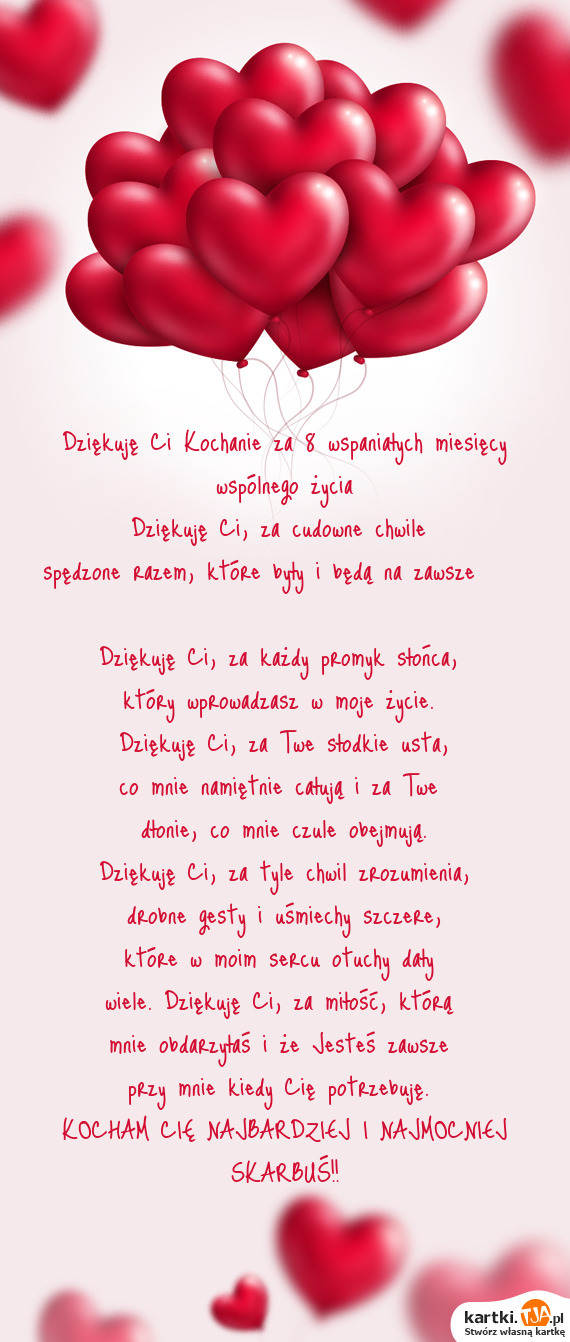 Dziękuję Ci Kochanie za 8 wspaniałych miesięcy
wspólnego życia
Dziękuję Ci, za cudowne chwile
spędzone razem, które były i będą na zawsze
Dziękuję Ci, za każdy promyk słońca,
który wprowadzasz w moje życie.
Dziękuję Ci, za Twe słodkie usta,
co mnie namiętnie całują i za Twe
dłonie, co mnie czule obejmują.
Dziękuję Ci, za tyle chwil zrozumienia,
drobne gesty i uśmiechy szczere,
które w moim sercu otuchy dały
wiele. Dziękuję Ci, za miłość, którą
mnie obdarzyłaś i że Jesteś zawsze
przy mnie kiedy Cię potrzebuję.
KOCHAM CIĘ NAJBARDZIEJ I NAJMOCNIEJ
SKARBUŚ!!
kartki.TJA.pl
Stwórz własną kartkę